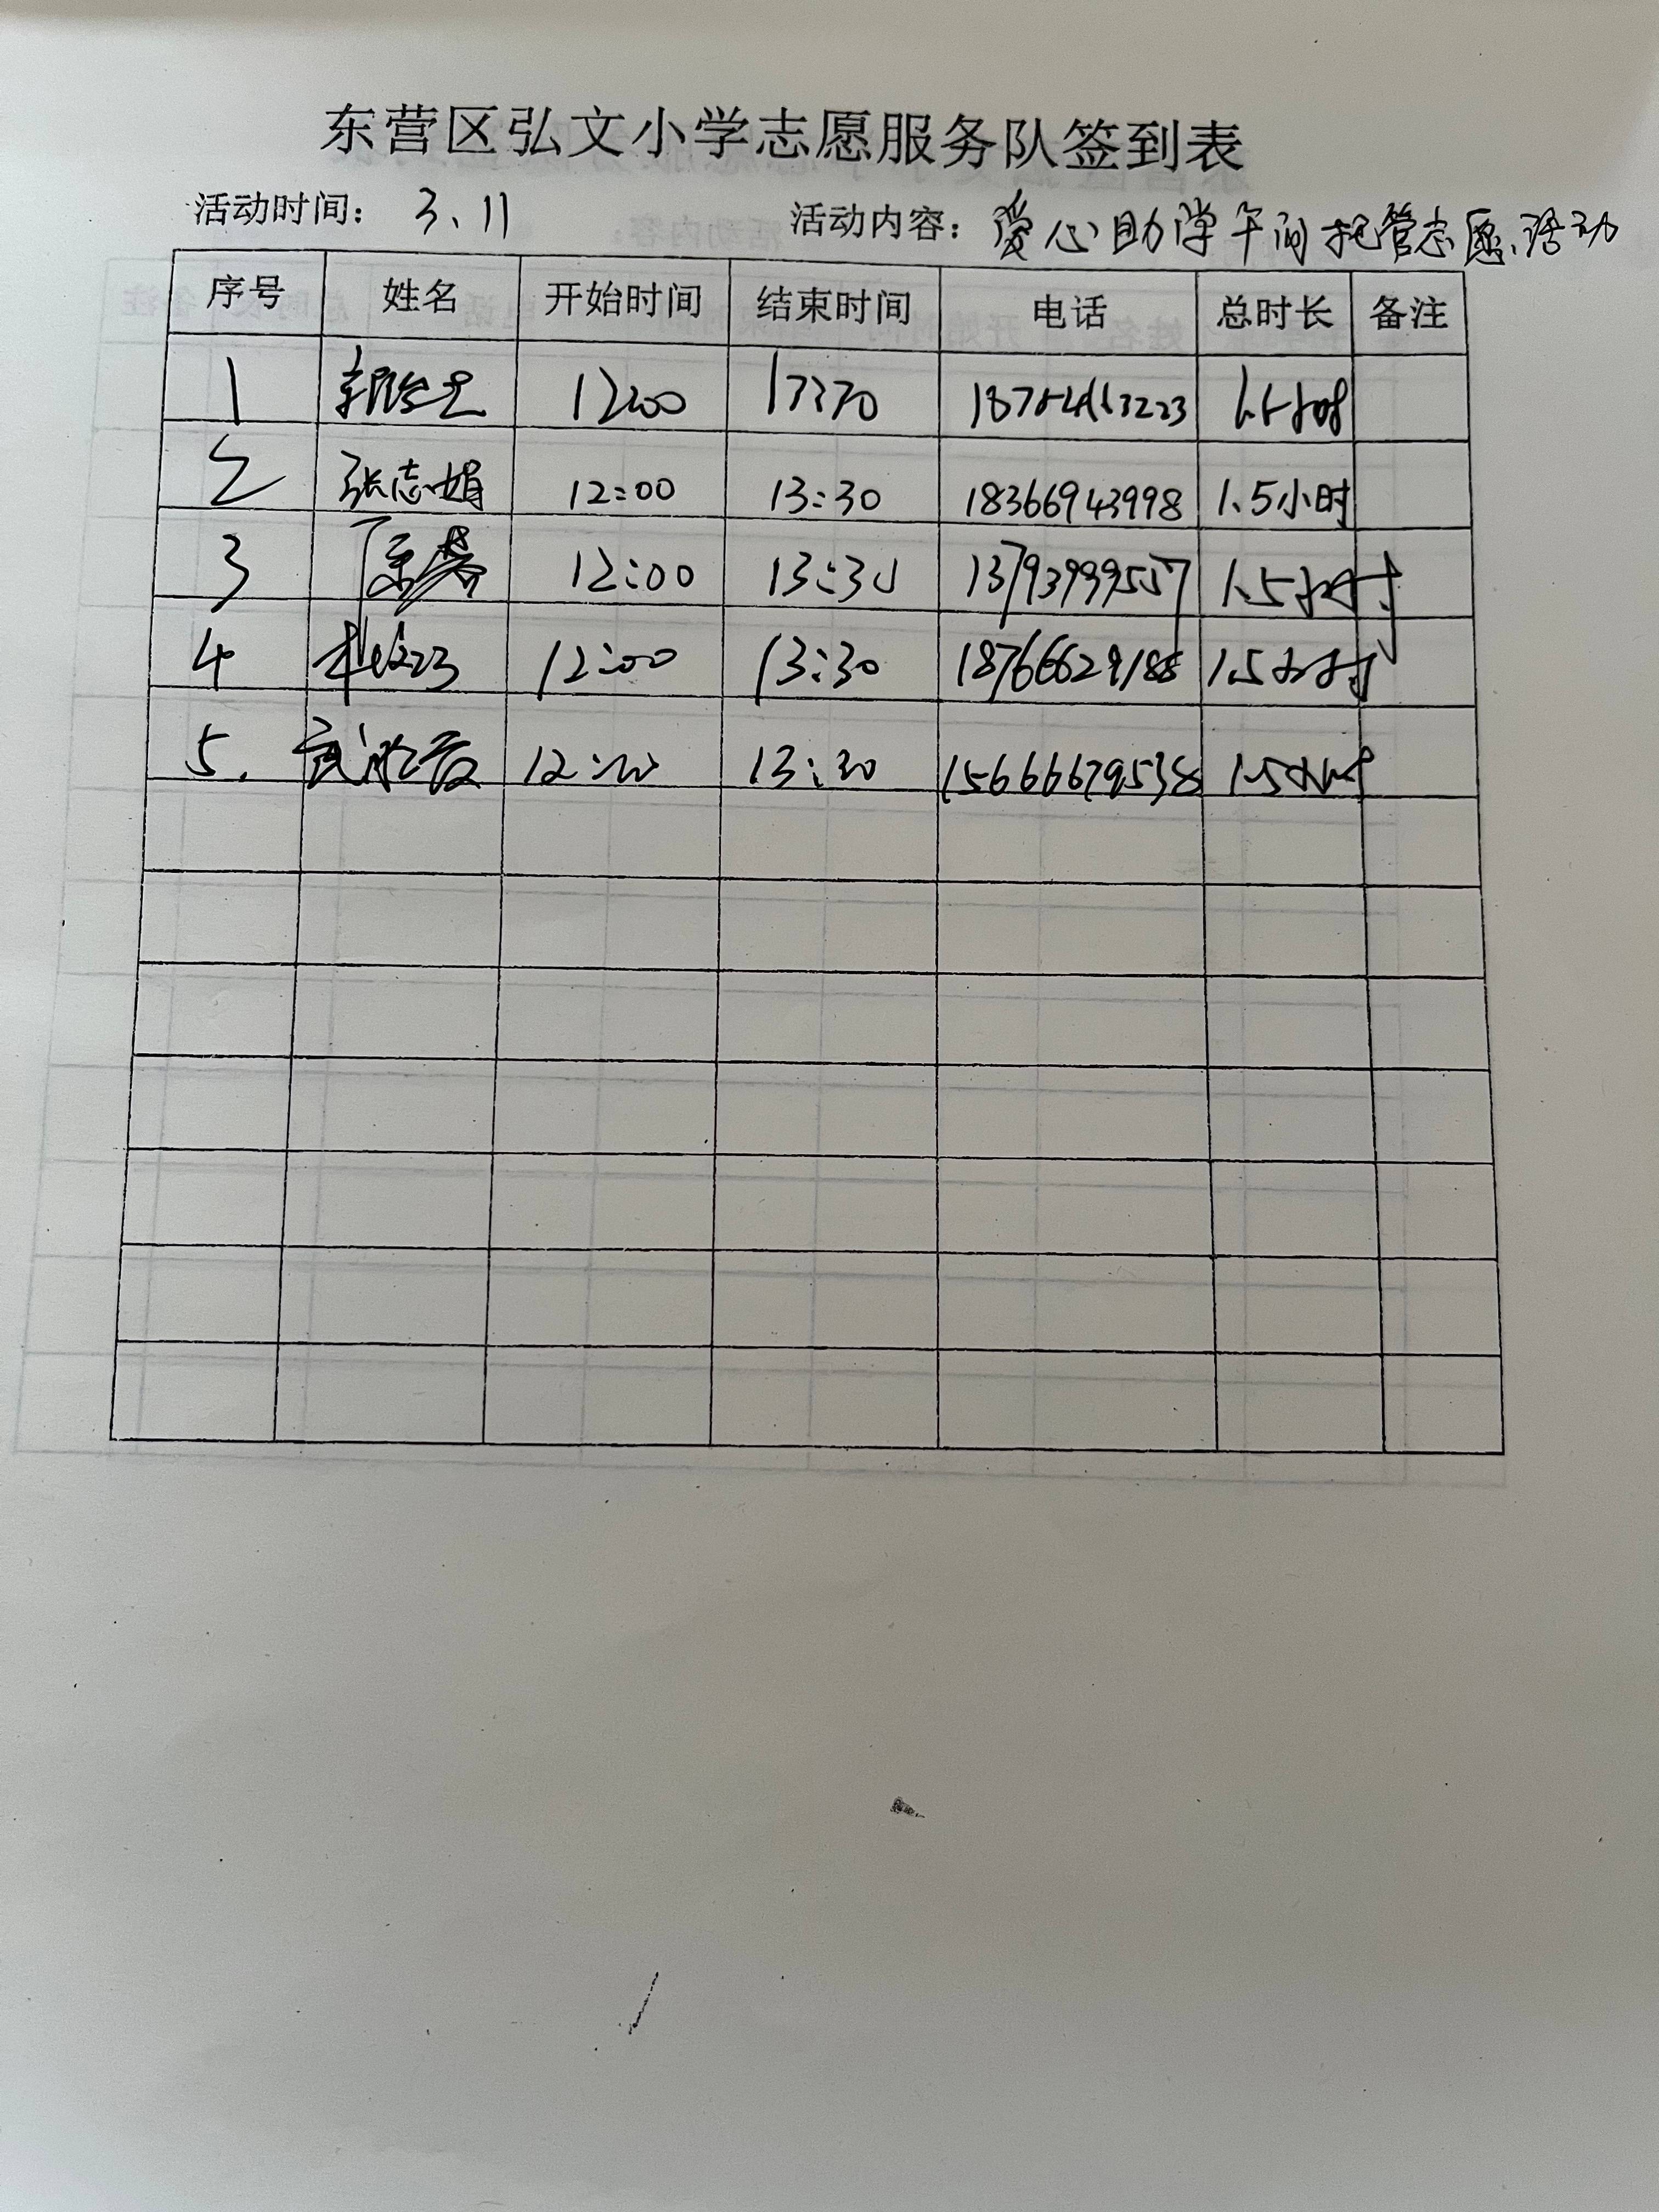 东营区弘文小学志愿服务队签到表
活动时间: 3、11 活动内容: 爱心助学午间托管志愿活动
序号 姓名 开始时间 结束时间 电话 总时长 备注
1 12:00 13:30 1.5小时
2 张志娟 12:00 13:30 18366943998 1.5小时
3 12:00 13:30 13793999557 1.5小时
4 12:00 13:30 18766629188 1.5小时
5. 12:00 13:30 15666679538 1.5小时